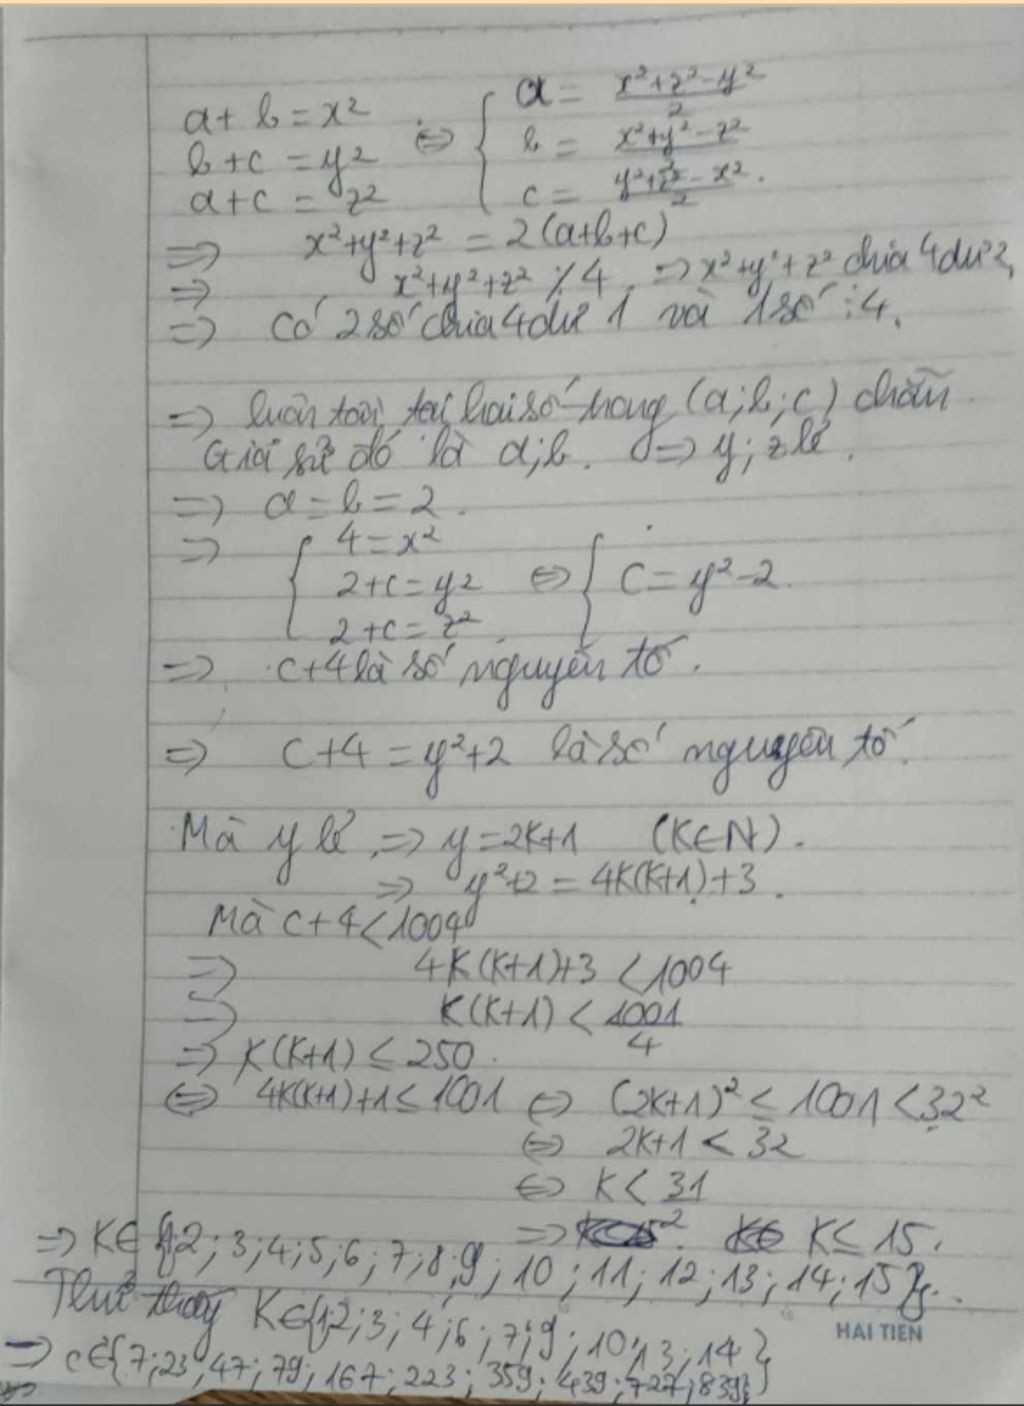 a + b = x² ⇔ { a = (x²+z²-y²)/2
b + c = y² b = (x²+y²-z²)/2
a + c = z² c = (y²+z²-x²)/2.
⇒ x²+y²+z² = 2(a+b+c)
⇒ x²+y²+z² ⋮̸ 4. ⇒ x²+y²+z² chia 4 dư 2,
⇒ Có 2 số chia 4 dư 1 và 1 số ⋮ 4.
⇒ luôn tồn tại hai số trong (a;b;c) chẵn
Giả sử đó là a;b. ⇒ y; z lẻ.
⇒ a = b = 2.
⇒ { 4 = x²
2+c = y² ⇔ { c = y²-2.
2+c = z².
⇒ c+4 là số nguyên tố.
⇒ c+4 = y²+2 là số nguyên tố.
Mà y lẻ, ⇒ y = 2K+1 (K∈N).
⇒ y²+2 = 4K(K+1)+3.
Mà c+4 < 1004
⇒ 4K(K+1)+3 < 1004
⇒ K(K+1) < 1001/4
⇒ K(K+1) ≤ 250.
⇔ 4K(K+1)+1 ≤ 1001 ⇔ (2K+1)² ≤ 1001 < 32²
⇔ 2K+1 < 32
⇔ K < 31
⇒ K ≤ 15.
⇒ K∈{1;2;3;4;5;6;7;8;9;10;11;12;13;14;15}.
Thử thấy K∈{1;2;3;4;6;7;9;10;13;14}
HAI TIEN
⇒ c∈{7;23;47;79;167;223;359;439;727;839}